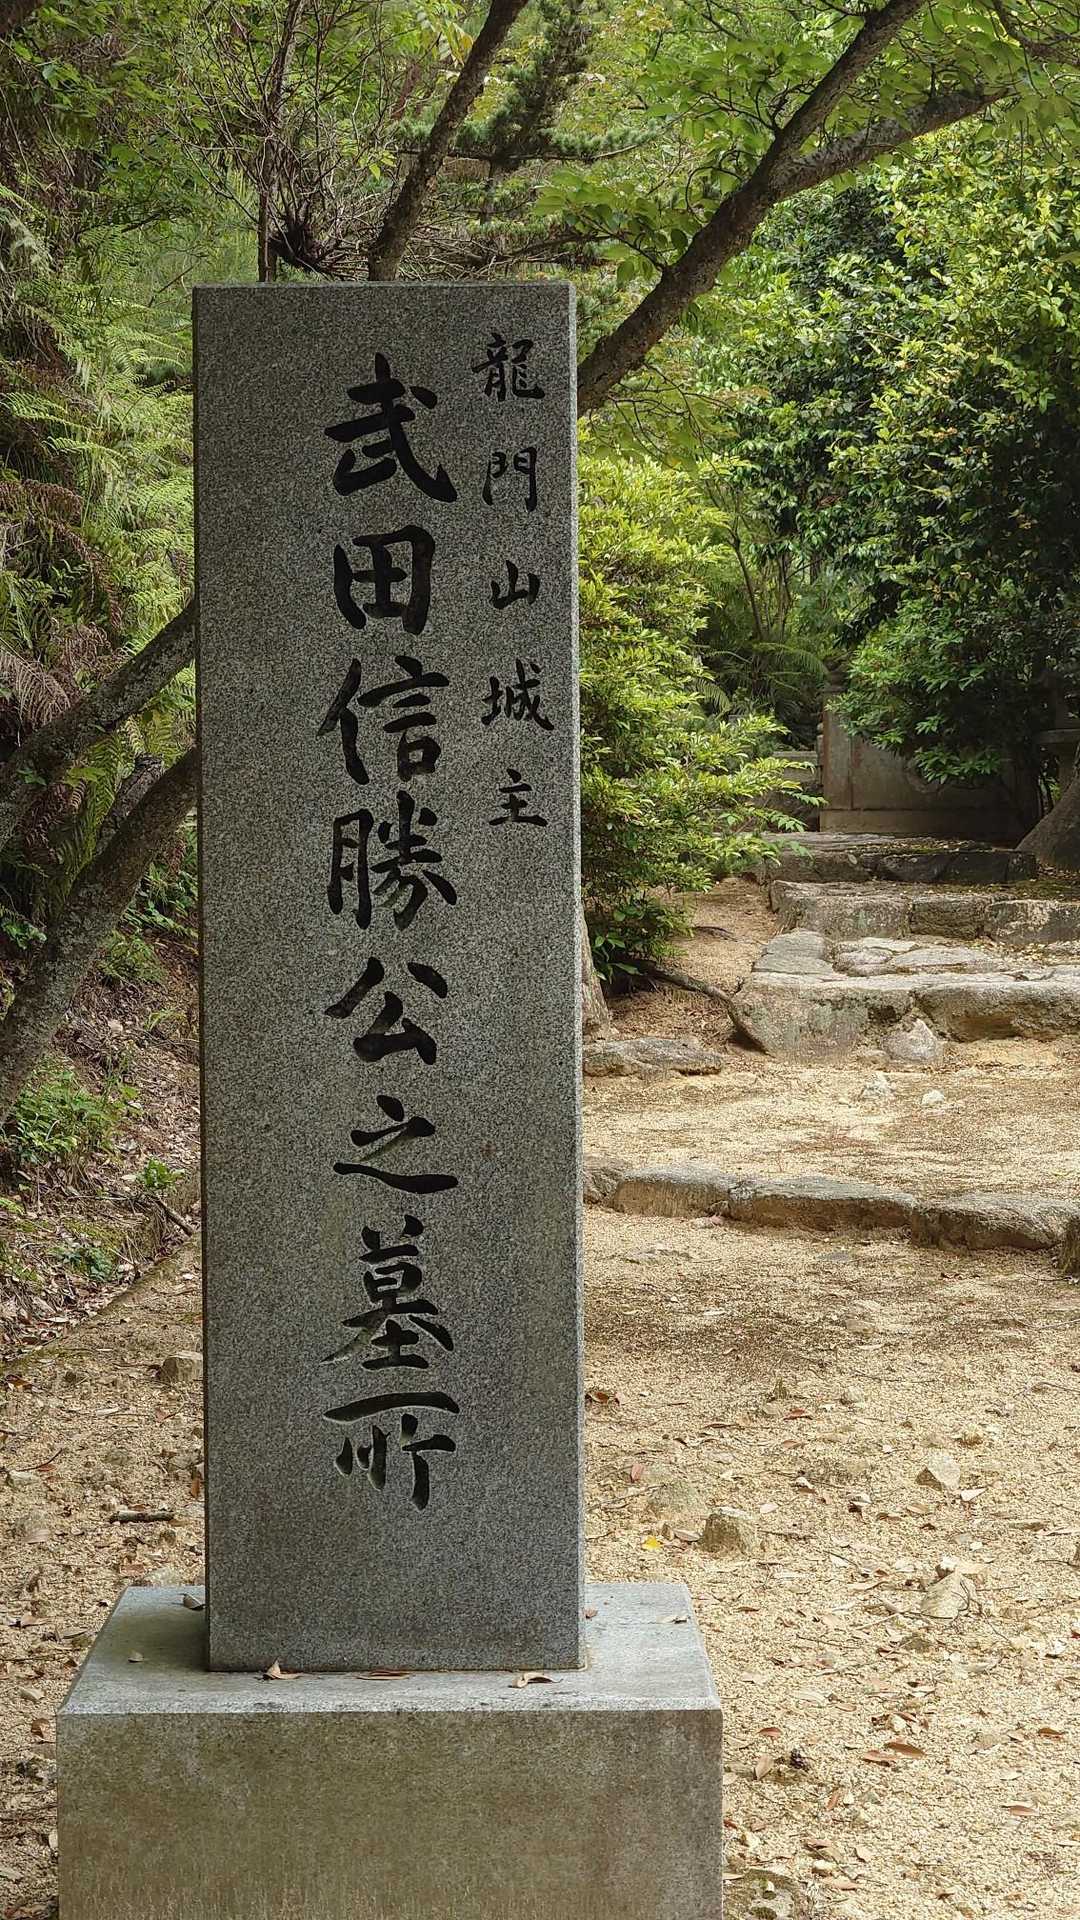 龍門山城主
武田信勝公之墓所